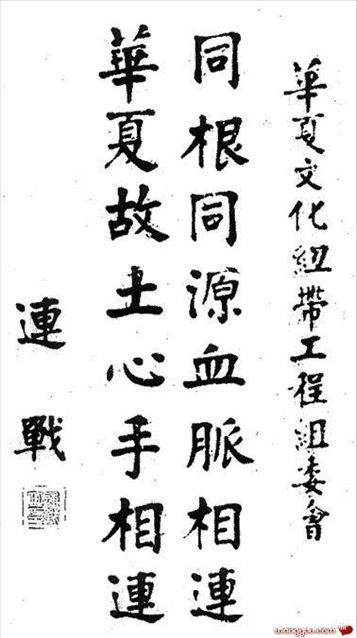 華夏文化紐帶工程組委會
同根同源血脈相連
華夏故土心手相連
連戰